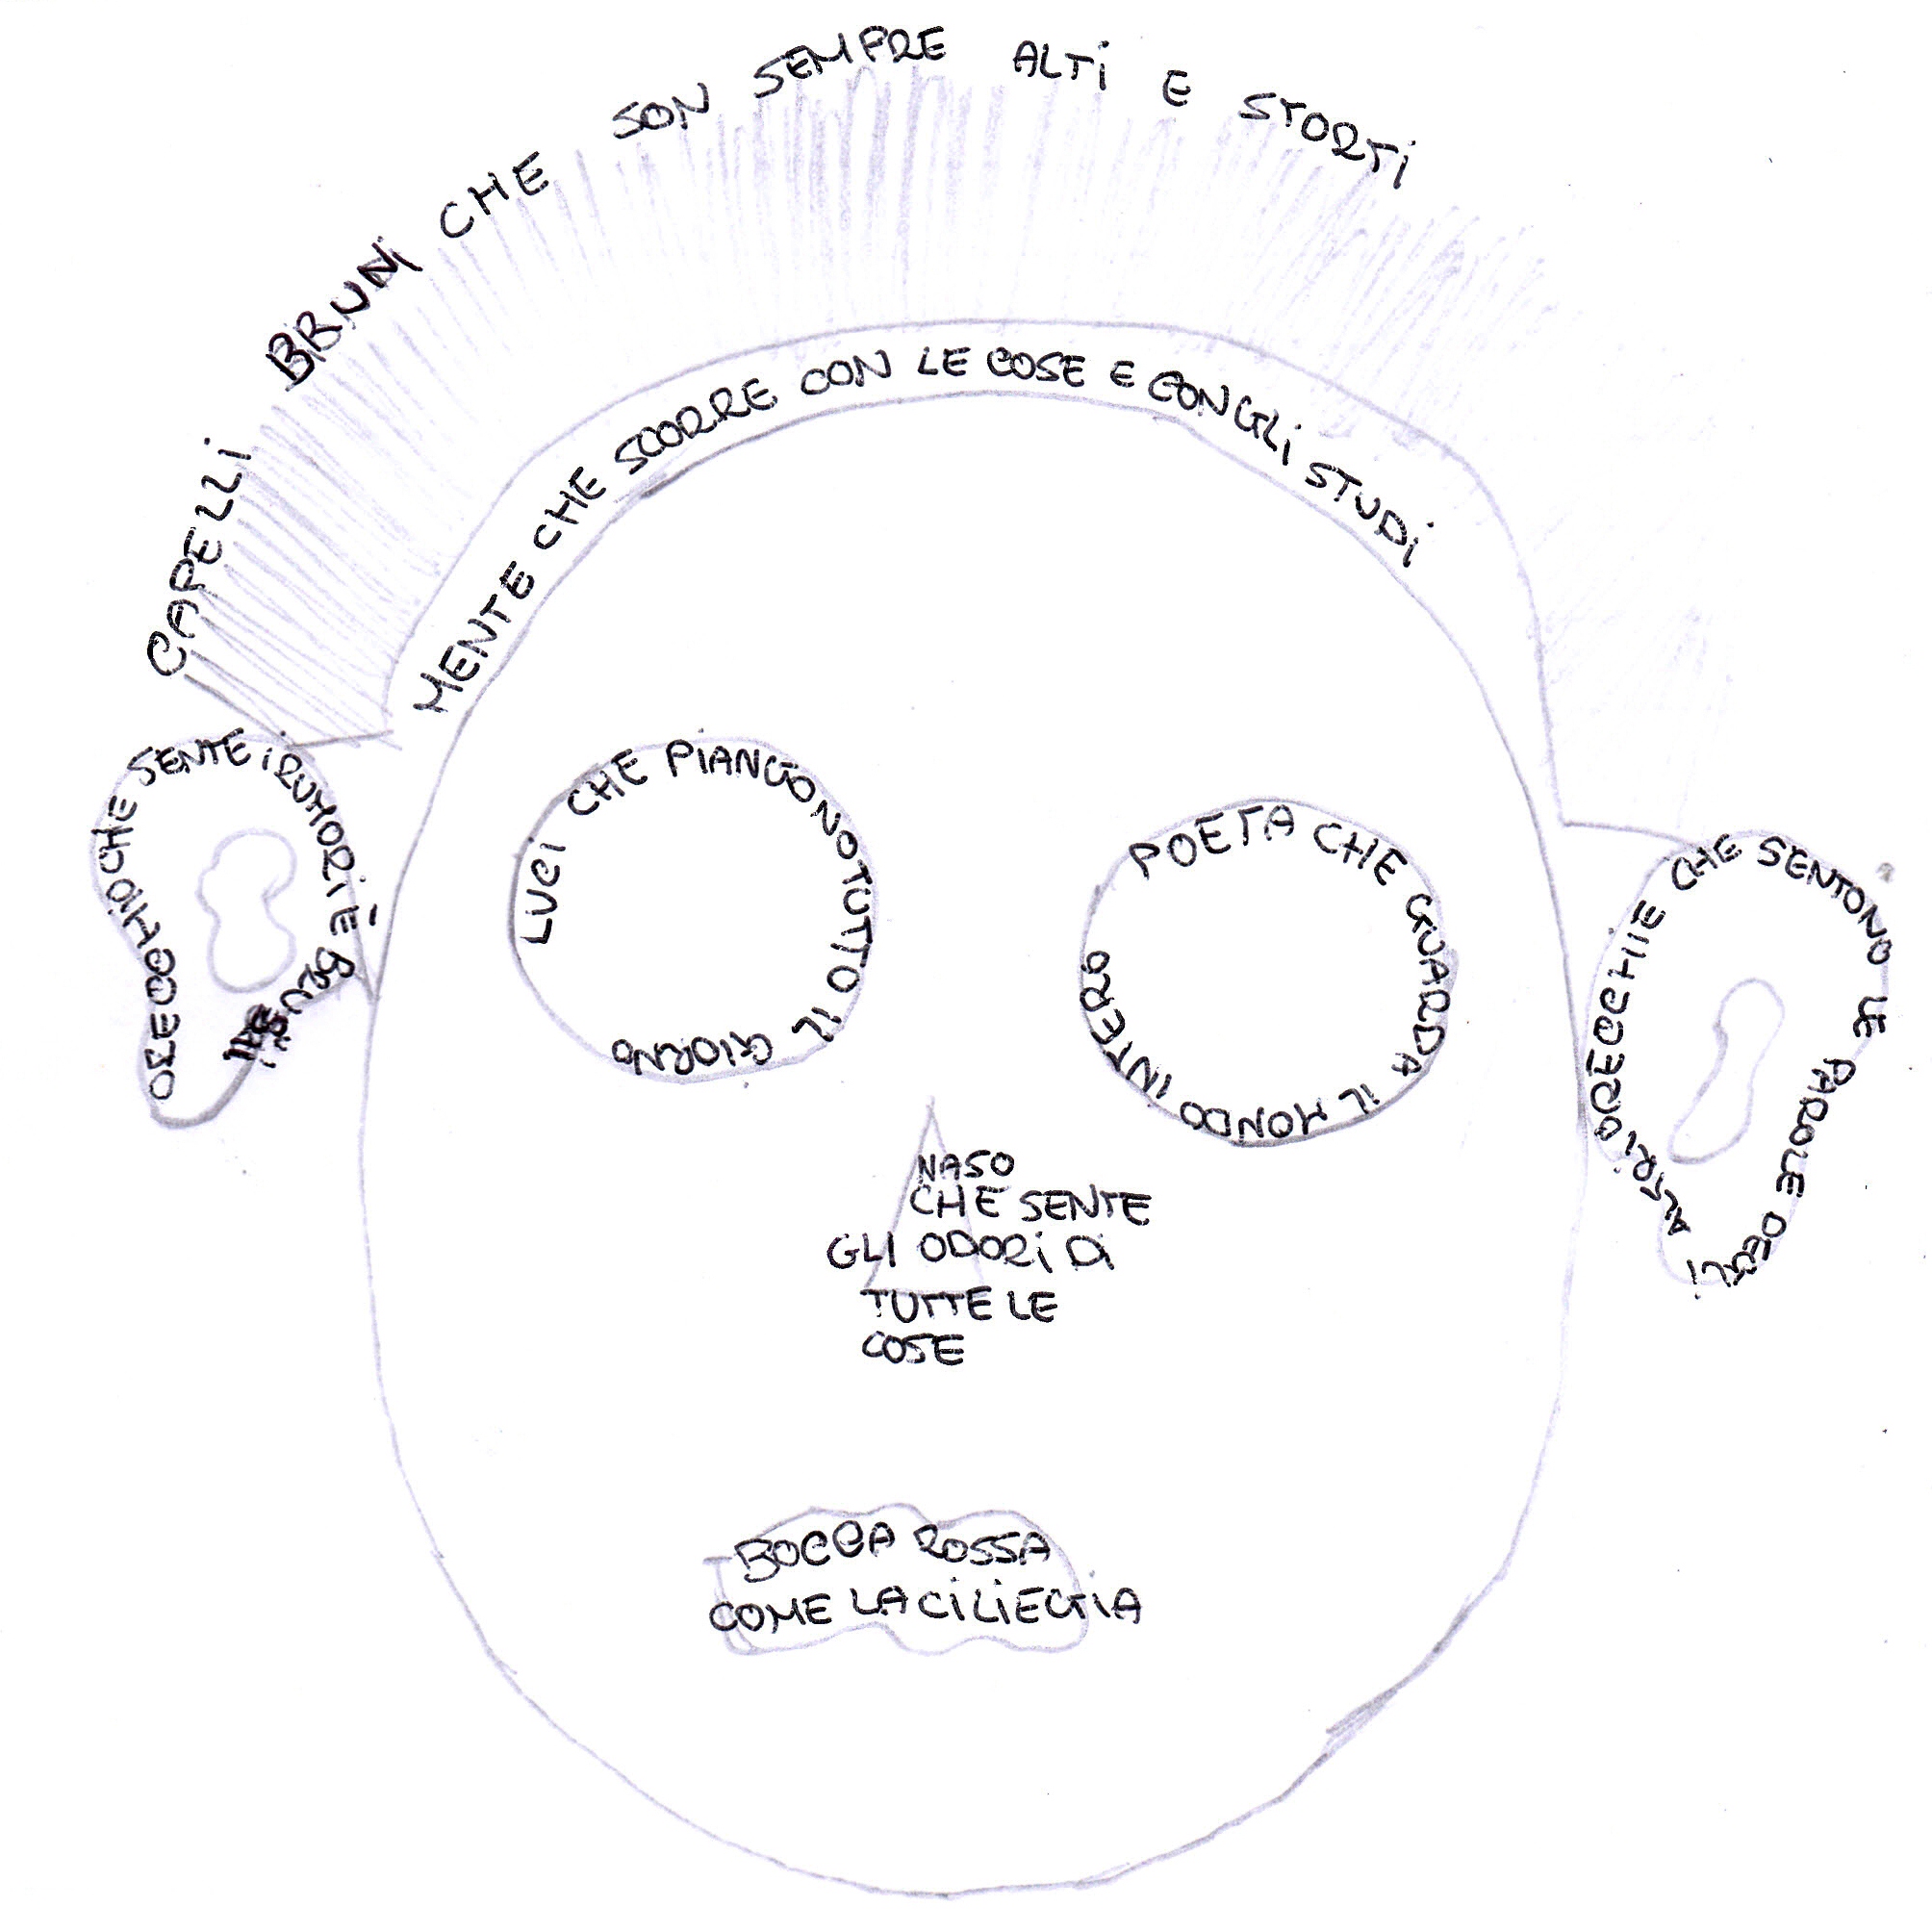 CAPELLI BRUNI CHE SON SEMPRE ALTI E STORTI
MENTE CHE SCORRE CON LE COSE E CON GLI STUDI
ORECCHIO CHE SENTE I RUMORI E
LUCI CHE PIANGONO TUTTO IL GIORNO
POETA CHE GUARDA IL MONDO INTERO
ORECCHIE CHE SENTONO LE PAROLE DEGLI ALTRI
NASO
CHE SENTE
GLI ODORI DI
TUTTE LE
COSE
BOCCA ROSSA
COME LA CILIEGIA